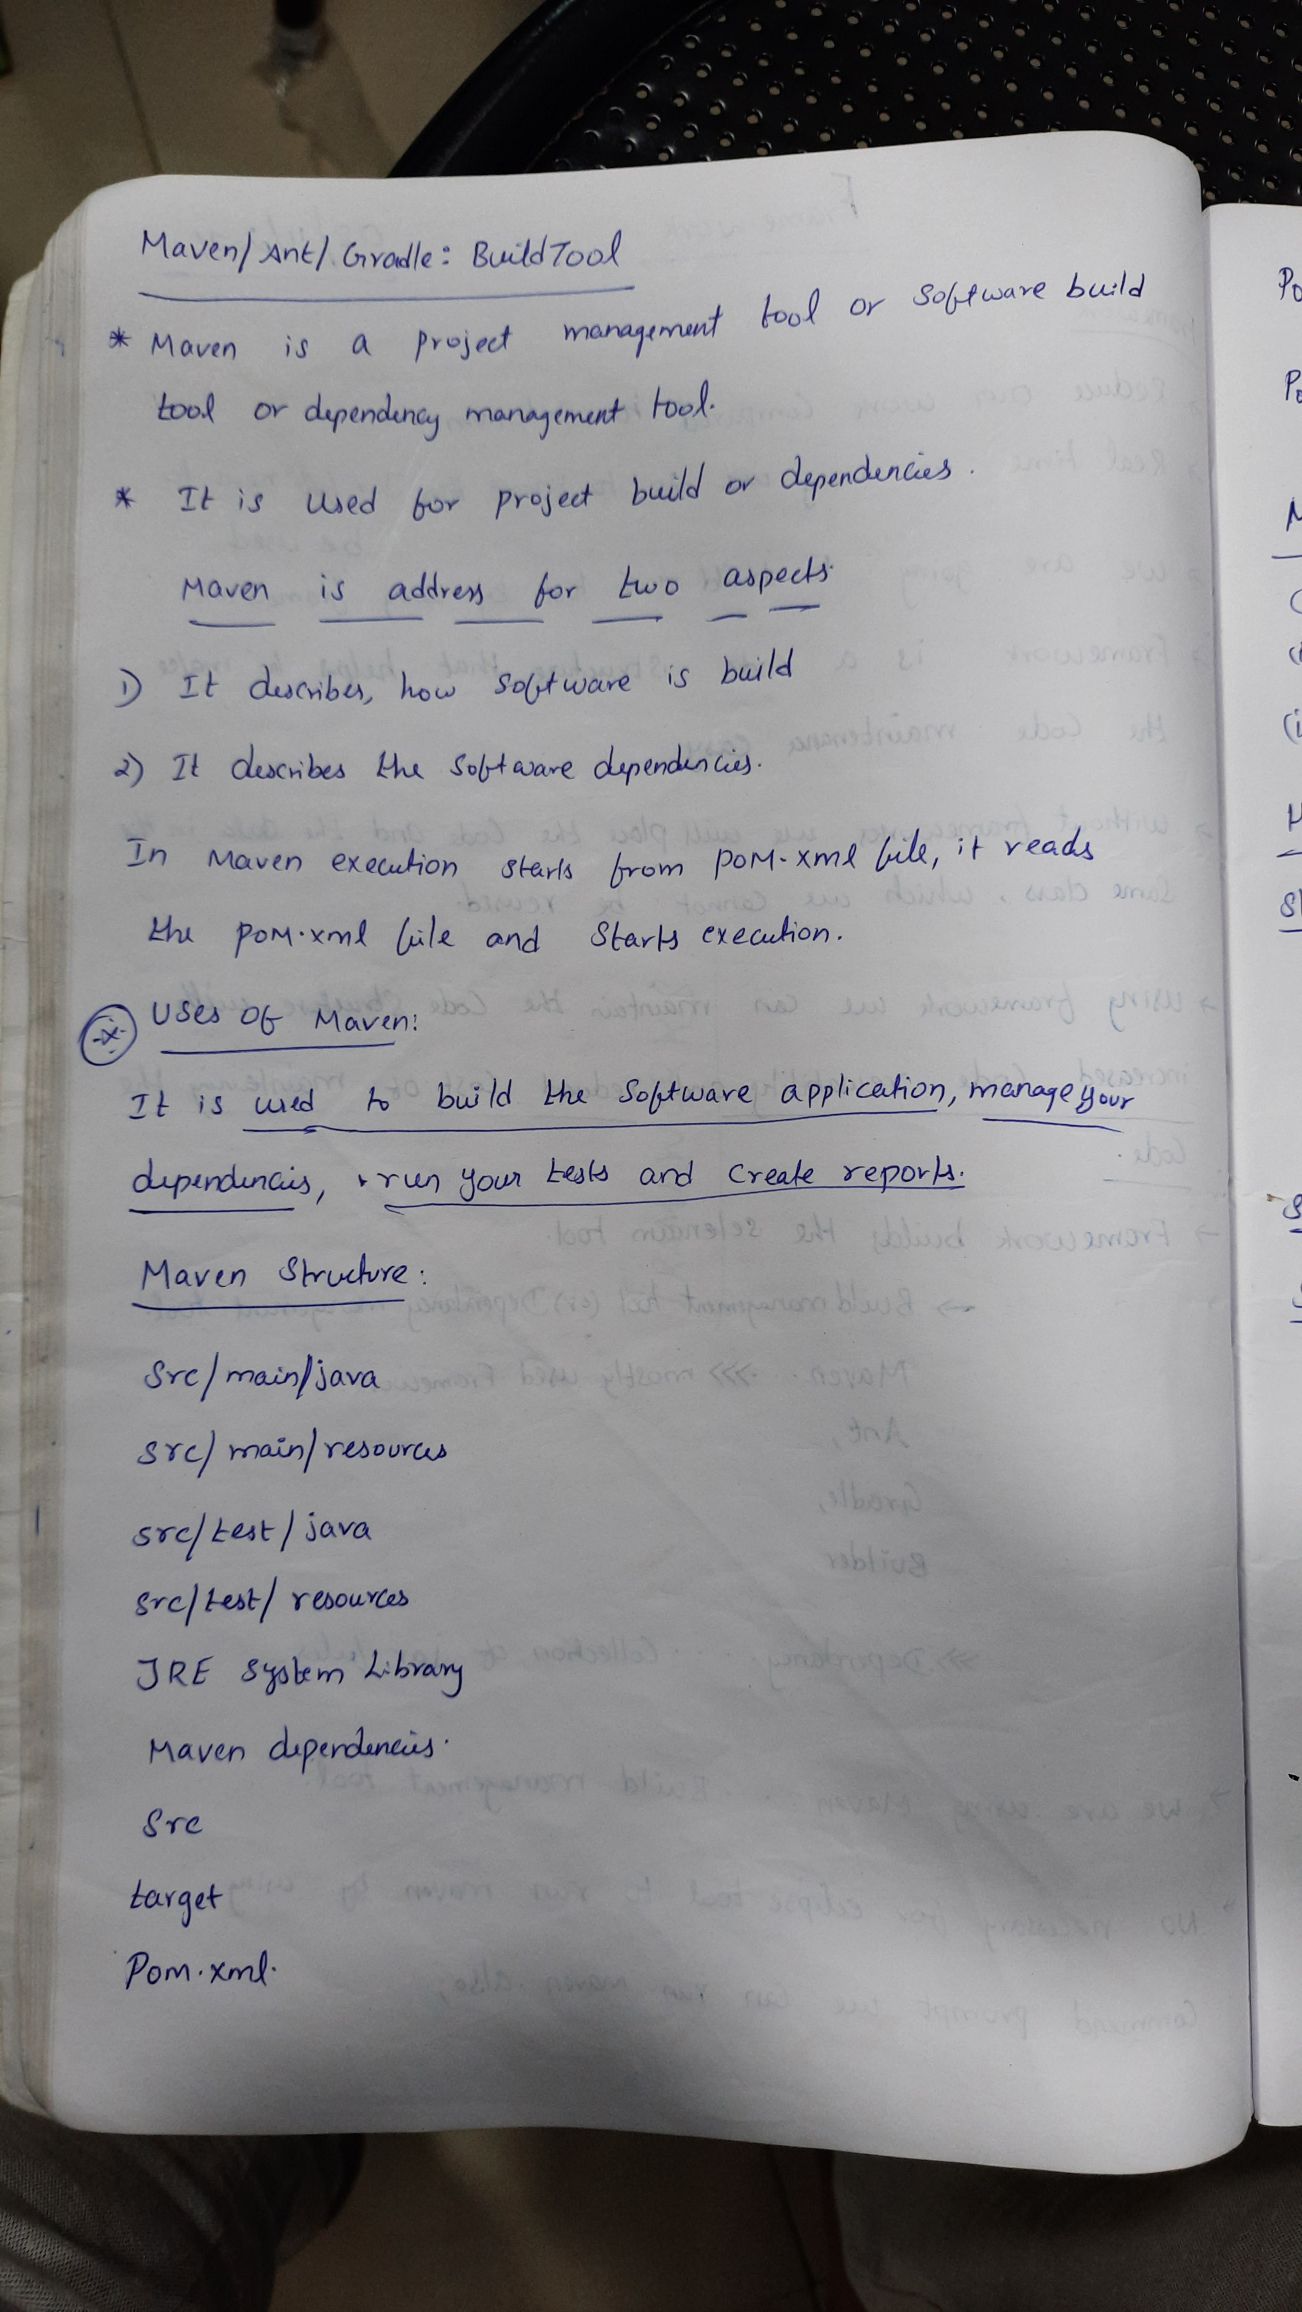 Maven/Ant/Gradle: Build Tool
* Maven is a project management tool or software build
tool or dependency management tool.
* It is used for project build or dependencies.
Maven is address for two aspects.
1) It describes, how software is build
2) It describes the software dependencies.
In Maven execution starts from POM.xml file, it reads
the POM.xml file and starts execution.
Uses of Maven:
It is used to build the software application, manage your
dependencies, run your tests and create reports.
Maven Structure:
src/main/java
src/main/resources
src/test/java
src/test/resources
JRE System Library
Maven dependencies.
Src
target
Pom.xml.